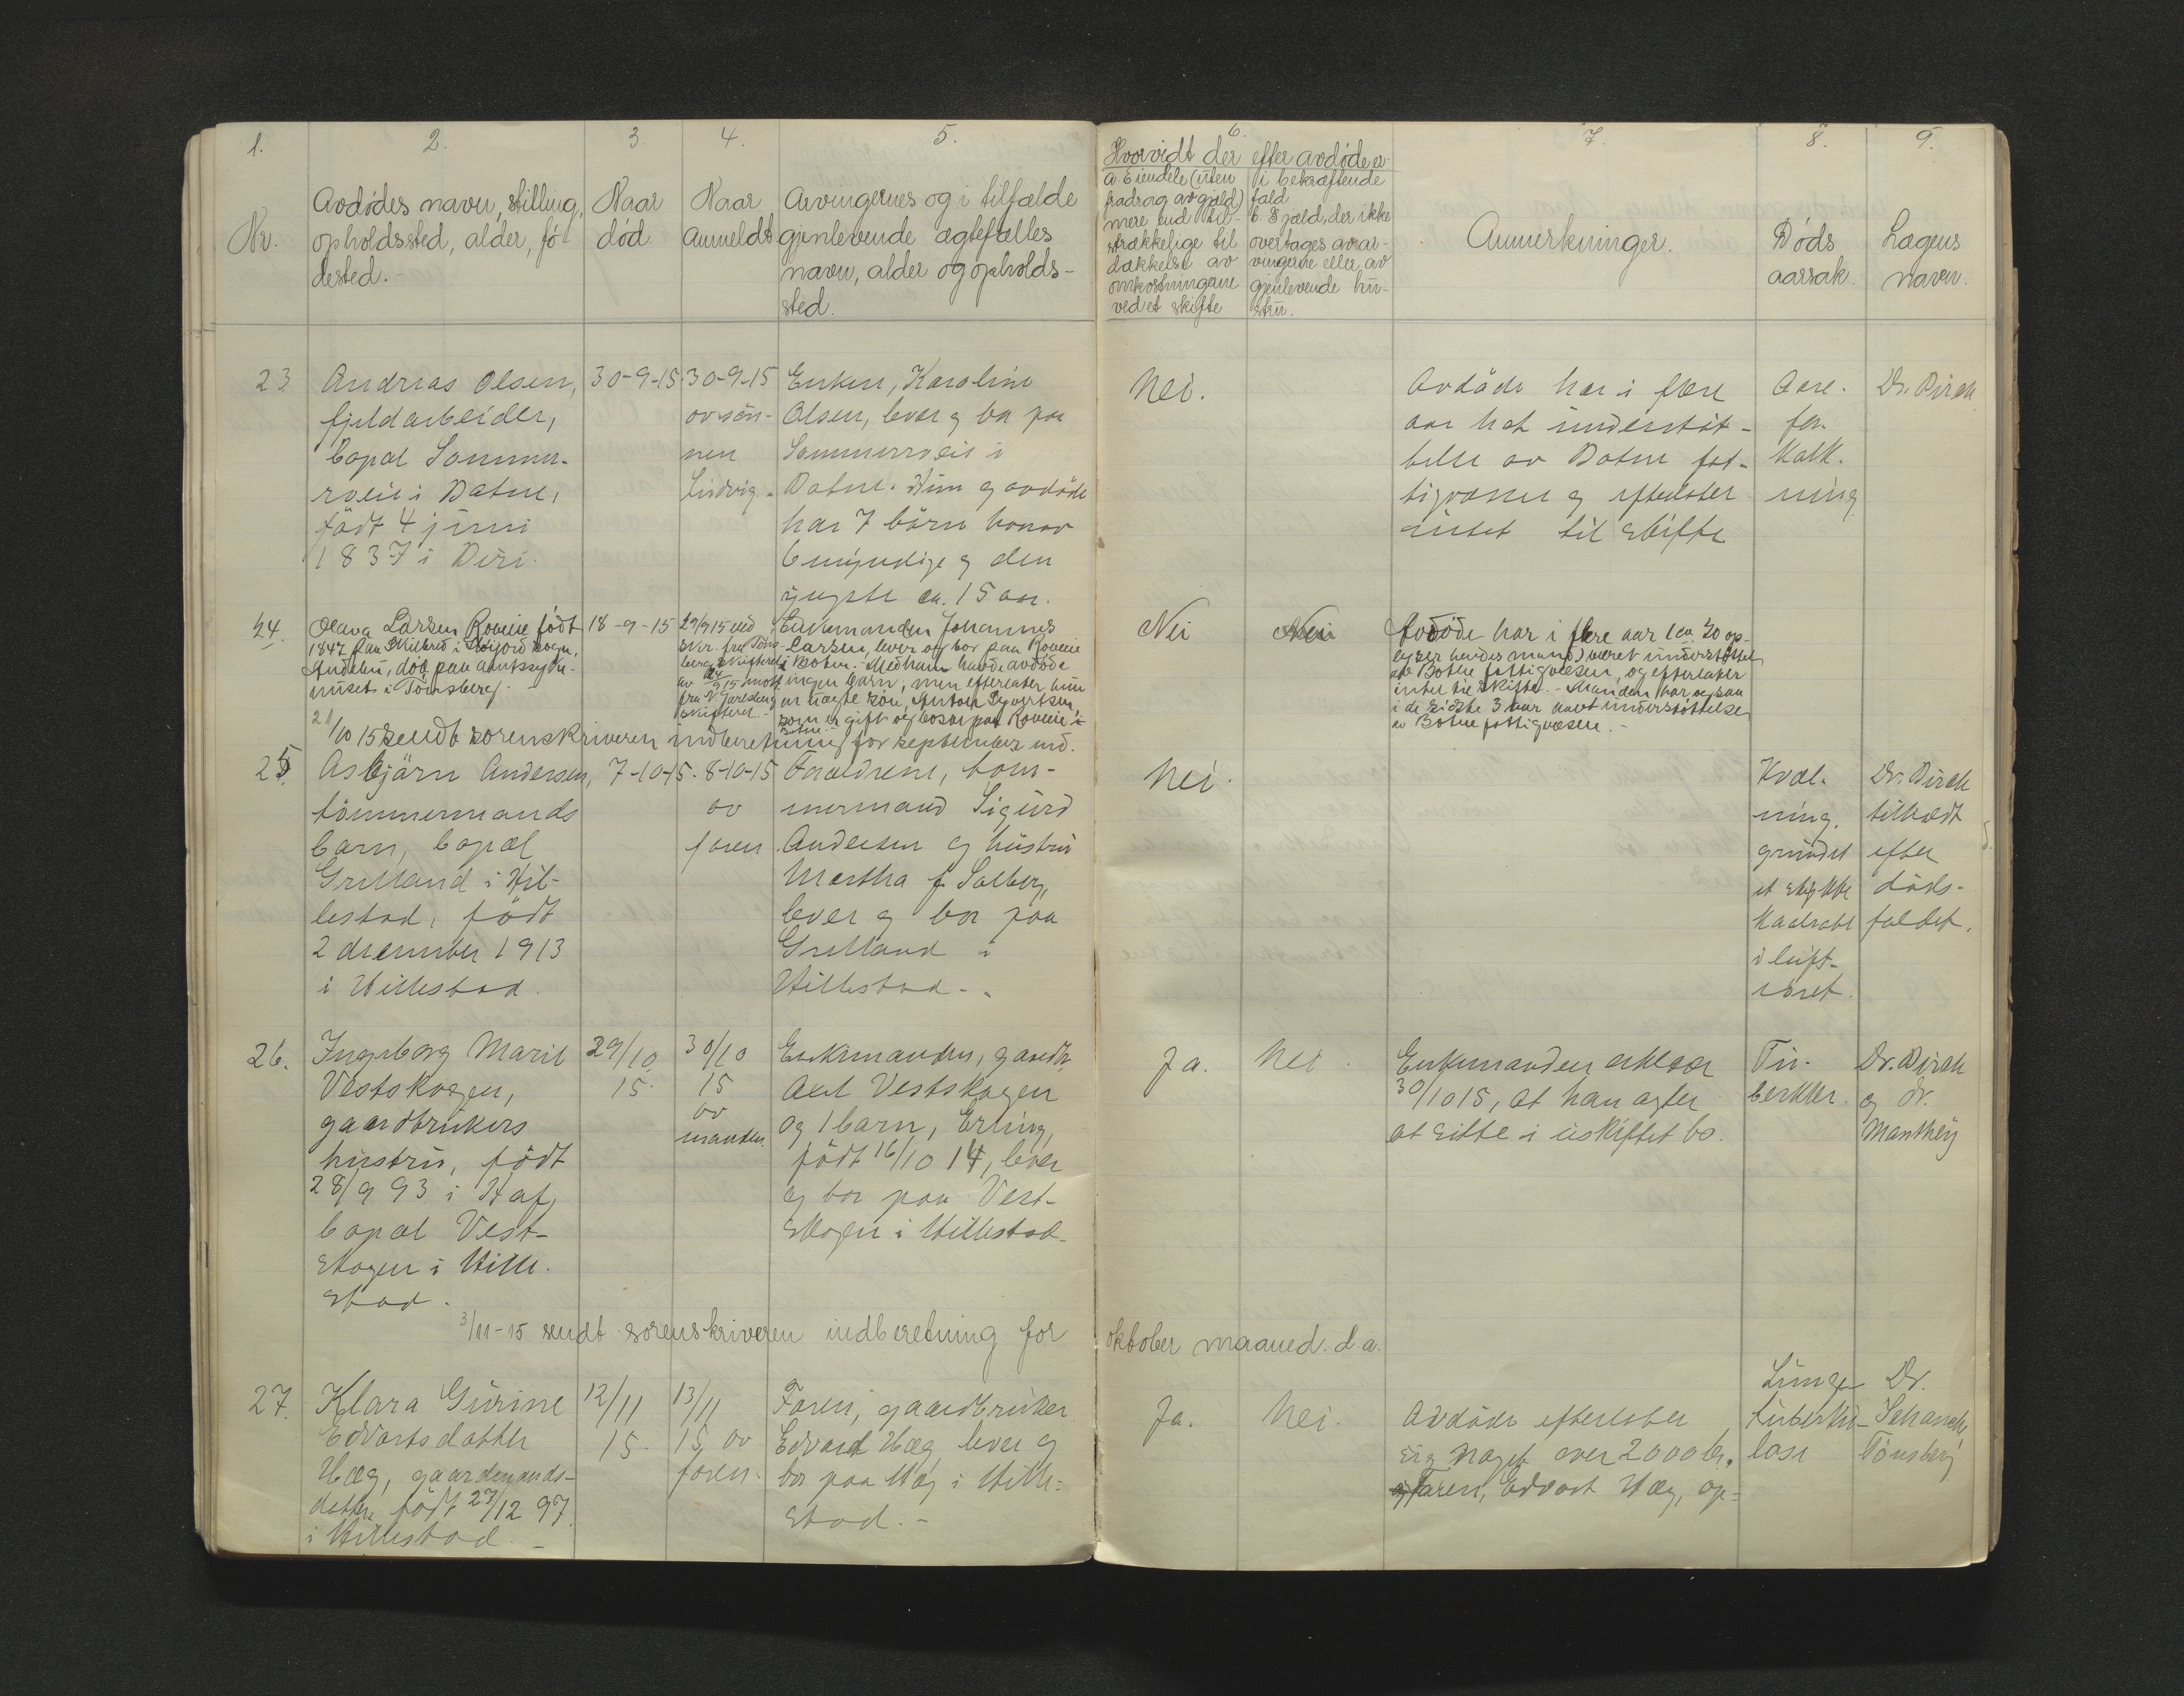 1.
2.
3.
4.
5.
6.
7.
8.
9.
Nr.
Avdødes navn, stilling,
opholdssted, alder, fö-
dested.-
Naar
död.
Naar
Anmeldt
Arvingernes og i tilfælde
gjenlevende ægtefælles
navn, alder og opholds-
sted.
Hvorvidt der efter avdøde er
a Eiendele (uten
fradrag av gjæld)
mere end til-
strækkelige til
dækkelse av
omkostningene
ved et skifte
i bekræftende
fald
b. Gjæld, der ikke
overtages av ar-
vingerne eller av
gjenlevende hu-
stru.
Anmerkninger.
Døds
aarsak.
Lægens
navn.
23
Andreas Olsen,
fjeldarbeider,
bopæl Sommer-
rveie i Botne,
födt 4 juni
1837 i Biri.
30-9-15
30-9-15
av sön-
nen
Ludvig.
Enken, Karoline
Olsen, lever og bor paa
Sommerrveie i
Botne. Hun og avdöde
har 7 börn hvorav
6 myndige og den
yngste ca. 15 aar.
Nei.
Avdöde har i flere
aar hat understöt-
telse av Botne fat-
tigvæsen og efterlater
intet til skifte
Aare-
for-
kalk-
ning
Dr. Birch
24.
Olava Larsen Roveie födt
1847 paa i sogn,
Andebu, död paa amtssyke-
huset i Tönsberg.
18-9-15
29/9 15 ved
skr. fra Töns-
berg skifteret
av 9 15 mott
fra N Jarlsberg
skifteret.-
Enkemanden Johannes
Larsen, lever og bor paa Roveie
i Botne.- Med ham havde avdöde
ingen barn; men efterlater hun
en uægte sön, Anton Syvertsen,
som er gift og bosat paa Roveie i
Botne.-
Nei
Nei
Avdöde har i flere aar (ca. 20 op-
lyser hendes mand) været understöttet
av Botne fattigvæsen, og efterlater
intet til skifte.- Manden har ogsaa
i de sidste 3 aar havt understöttelse
av Botne fattigvæsen.-
21/10 15 sendt sorenskriveren indberetning for september md.
25
Asbjörn Andersen,
tömmermands
barn, bopæl
Grelland i Hil-
lestad, födt
2 december 1913
i Hillestad.
7-10-15.
8-10-15
av
faren
Forældrene, töm-
mermand Sigurd
Andersen og hustru
Martha f. Solberg,
lever og bor paa
Grelland i
Hillestad.-
Nei.
Kvæl-
ning,
grundet
et stykke
kaalrabi
i luft-
röret.
Dr. Birch
tilkaldt
efter
döds-
faldet.
26.
Ingeborg Marie
Vestskogen,
gaardbrukers
hustru, födt
28/9 93 i Hof,
bopæl Vest-
skogen i Hille-
stad.
29/10
15.
30/10
15
av
manden.
Enkemanden, gaardbr.
Axel Vestskogen
og 1 barn, Erling,
födt 16/10 14, lever
og bor paa Vest-
skogen i Hillestad.
Ja.
Nei.
Enkemanden erklær
30/10 15, at han agter
at sitte i uskiftet bo.
Tu-
berkler.
Dr. Birch
og dr.
Manthey
3/11-15 sendt sorenskriveren indberetning for oktober maaned. d.a.
27.
Klara Gurine
Edvartsdatter
Hæg, gaardmands-
datter, födt 27/12 97
i Hillestad.-
12/11
15.
13/11
15 av
faren.
Faren, gaardbruker
Edvard Hæg, lever og
bor paa Hæg i Hille-
stad.-
Ja.
Nei.
Avdöde efterlater
sig noget over 2000 kr.
Faren, Edvart Hæg, op-
Lunge
tuberku-
lose
Dr.
Schanche,
Tönsberg